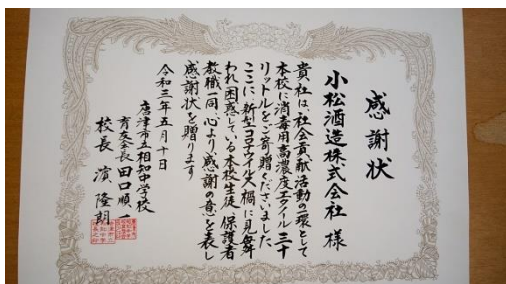 感謝状
小松酒造株式会社 様
貴社は、社会貢献活動の一環として
本校に消毒用高濃度エタノール三十
リットルをご寄贈くださいました
ここに、新型コロナウイルス禍に見舞
われ困惑している本校生徒、保護者
教職一同、心より感謝の意を表し
感謝状を贈ります
令和三年五月十日
唐津市立相知中学校
育友会長 田口順一
校長 濵 隆朗